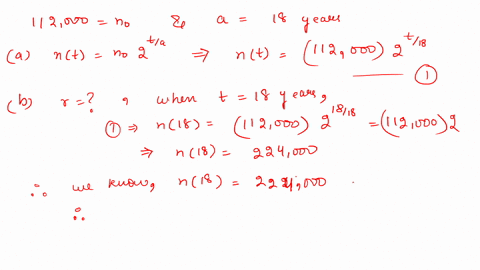 112,000 = n₀ & a = 18 years
(a) n(t) = n₀ 2^{t/a} ⇒ n(t) = (112,000) 2^{t/18}
①
(b) r = ? , when t = 18 years,
① ⇒ n(18) = (112,000) 2^{18/18} = (112,000) 2
⇒ n(18) = 224,000
∴ we know, n(18) = 224,000
∴